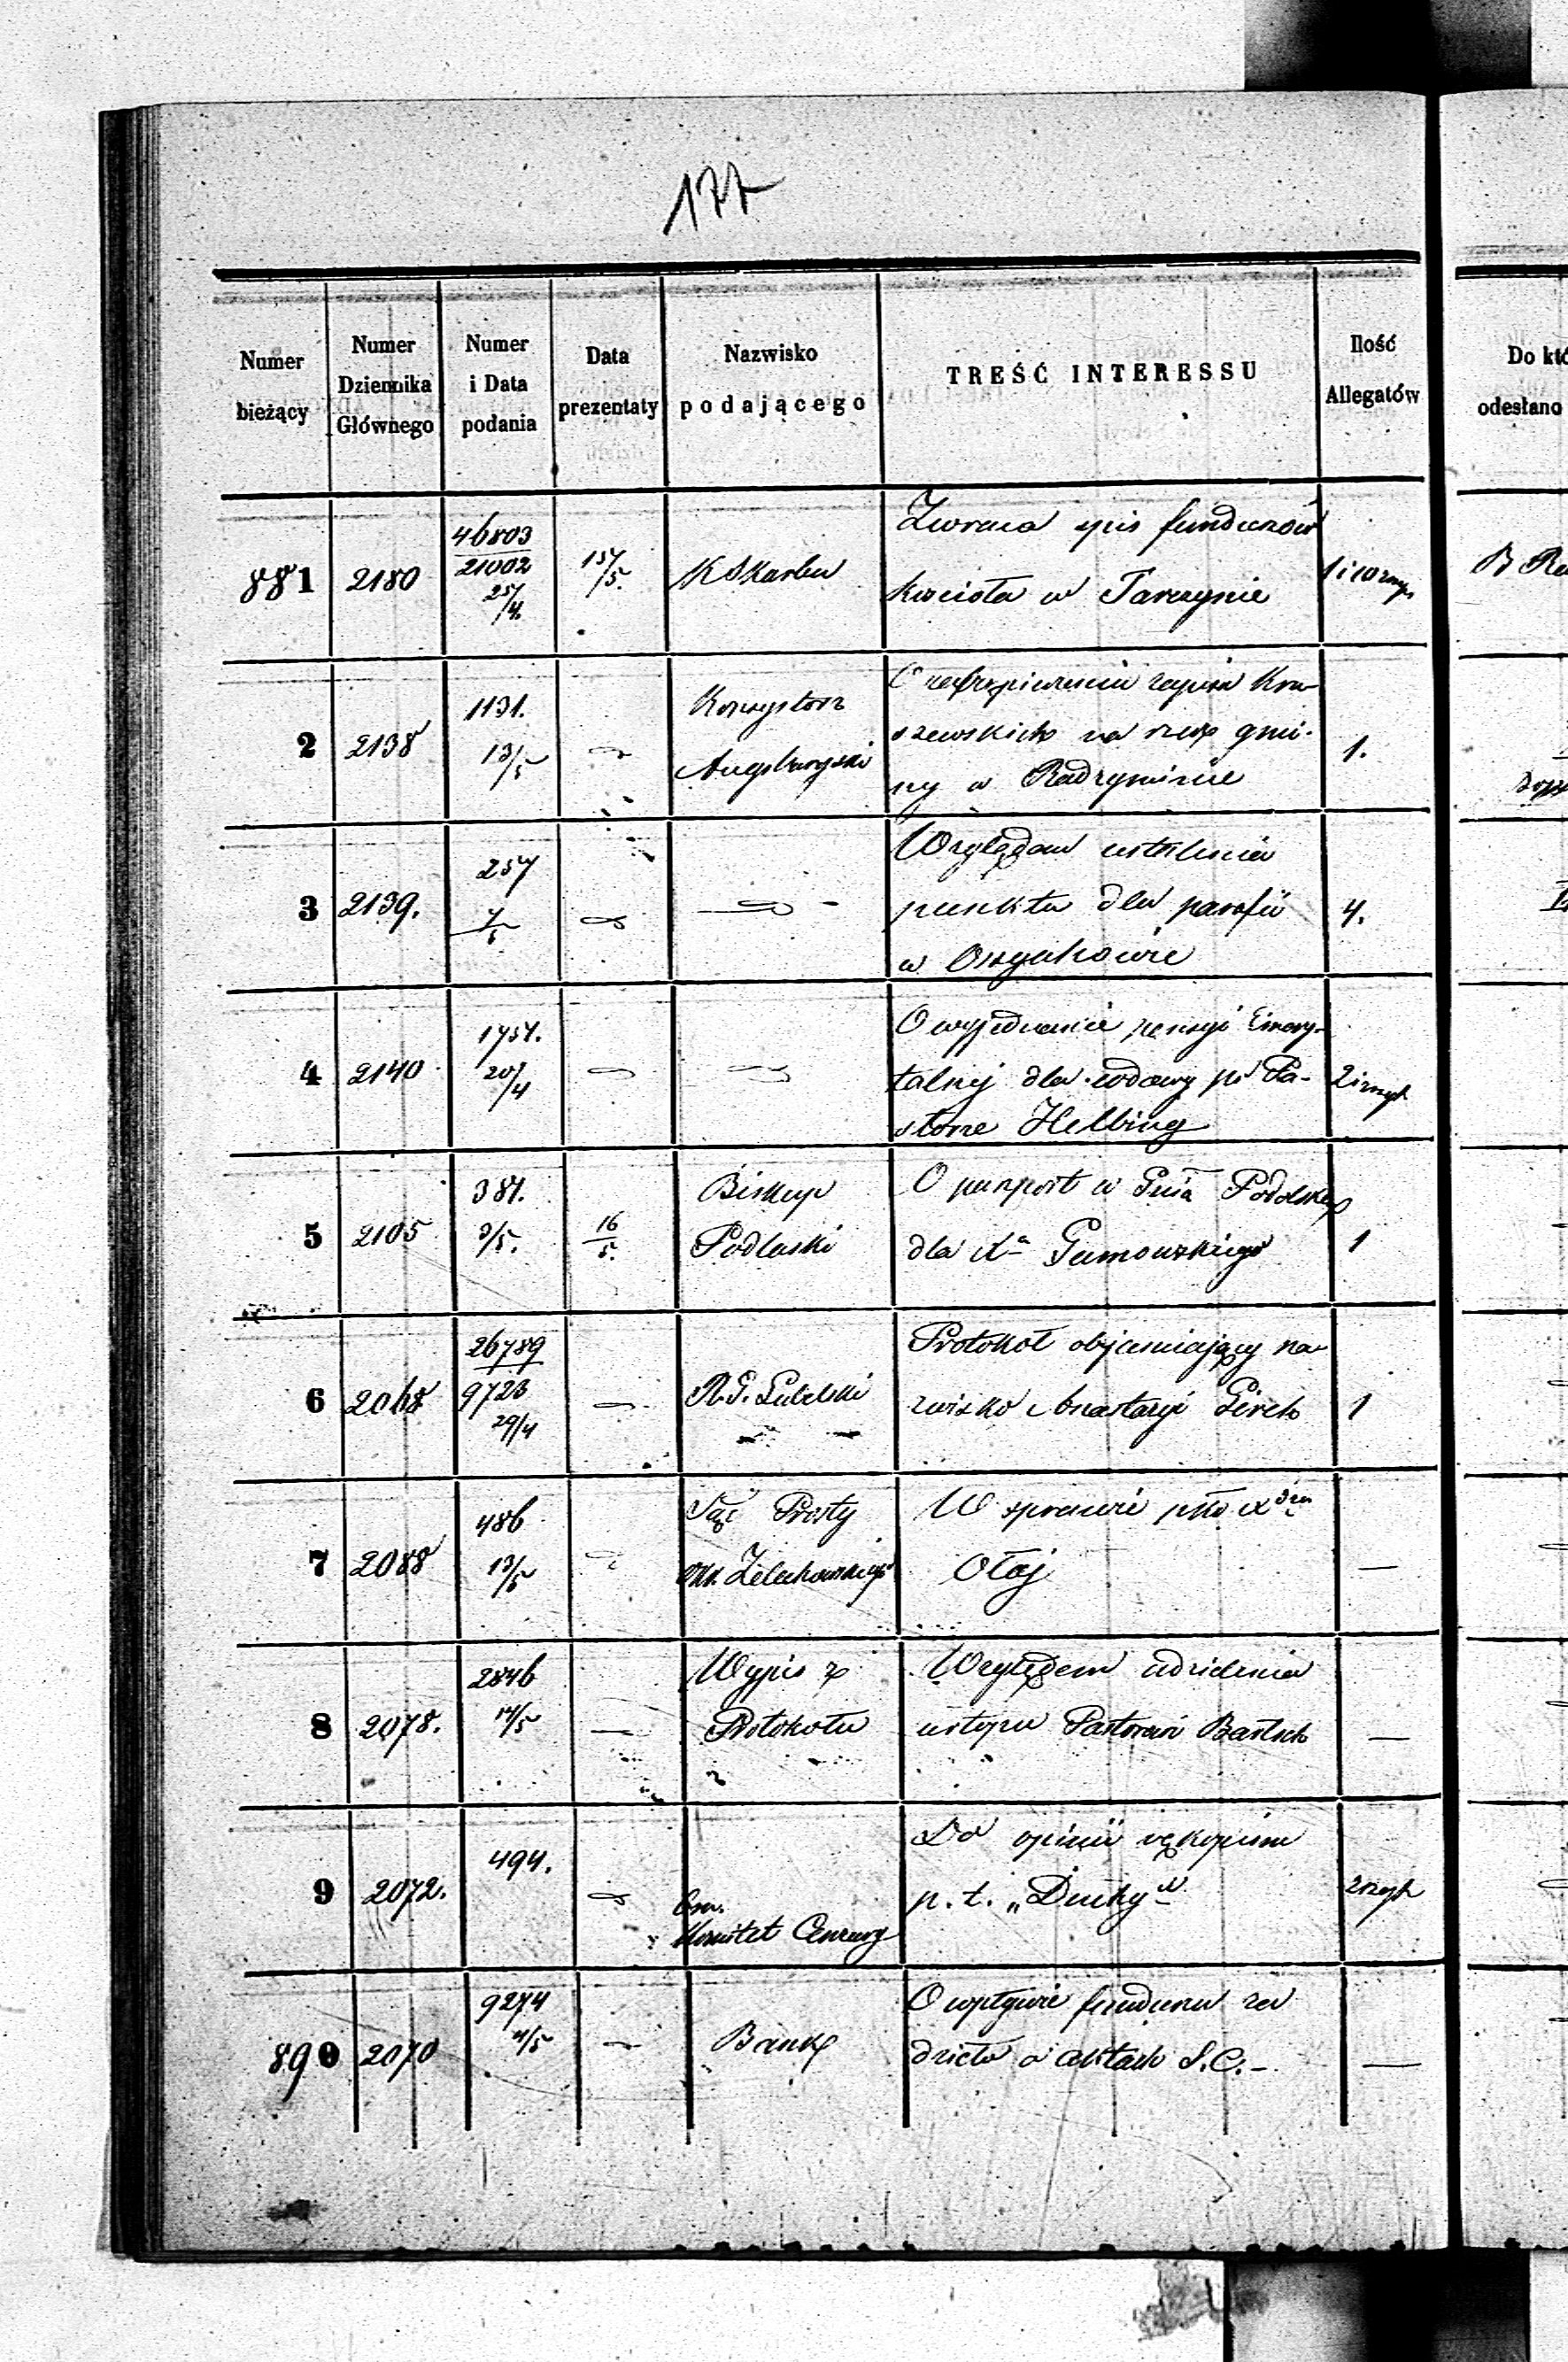 177
Numer bieżący
Numer Dziennika Głównego
Numer i Data podania
Data prezentaty
Nazwisko podającego
TREŚĆ INTERESSU
Ilość Allegatów
Do któ
odesłano
881 2180 46803 21002 25/4. 15/5. K Skarbu
Zwraca spis funduszów
kościoła w Tarczynie
1 i 10
2 2138 1131. 13/5 Konsystorz Augsburgski
O
szewskich na rzecz gmi-
ny w Radzyminie
1.
3 2139. 257
Względem ustalenia
punktu dla parafii
w Osiyakowie
4.
4 2140 1757. 20/4
O wyjednanie pensyi Emery-
talnej dla wdowy po Pa-
storze Helbing
2 i
5 2105 387. 3/5. 16/5. Biskup Podlaski
O paszport w Gub Podolską
dla Xa Gumowskiego
1
6 2068 26789 9723 29/4 R.G. Lubelski
Protokół objaśniający na-
zwisko Anastazyi Girch
1
7 2088 486 13/5 Sąd Prosty okr. Żelechowskiego
W sprawie pko Xdzu
Ołaj
—
8 2078. 2846 14/5 — Wypis z Protokołu
Względem udzielenia
urlopu Pastorowi Bartsch
—
9 2072. 494. Komitet Cenzury
Do opinii rękopism
p. t. „Duchy"
2
890 2070 9274 4/5 — Bank
O wpływie funduszu za
dzieło o aktach S.C.—
—